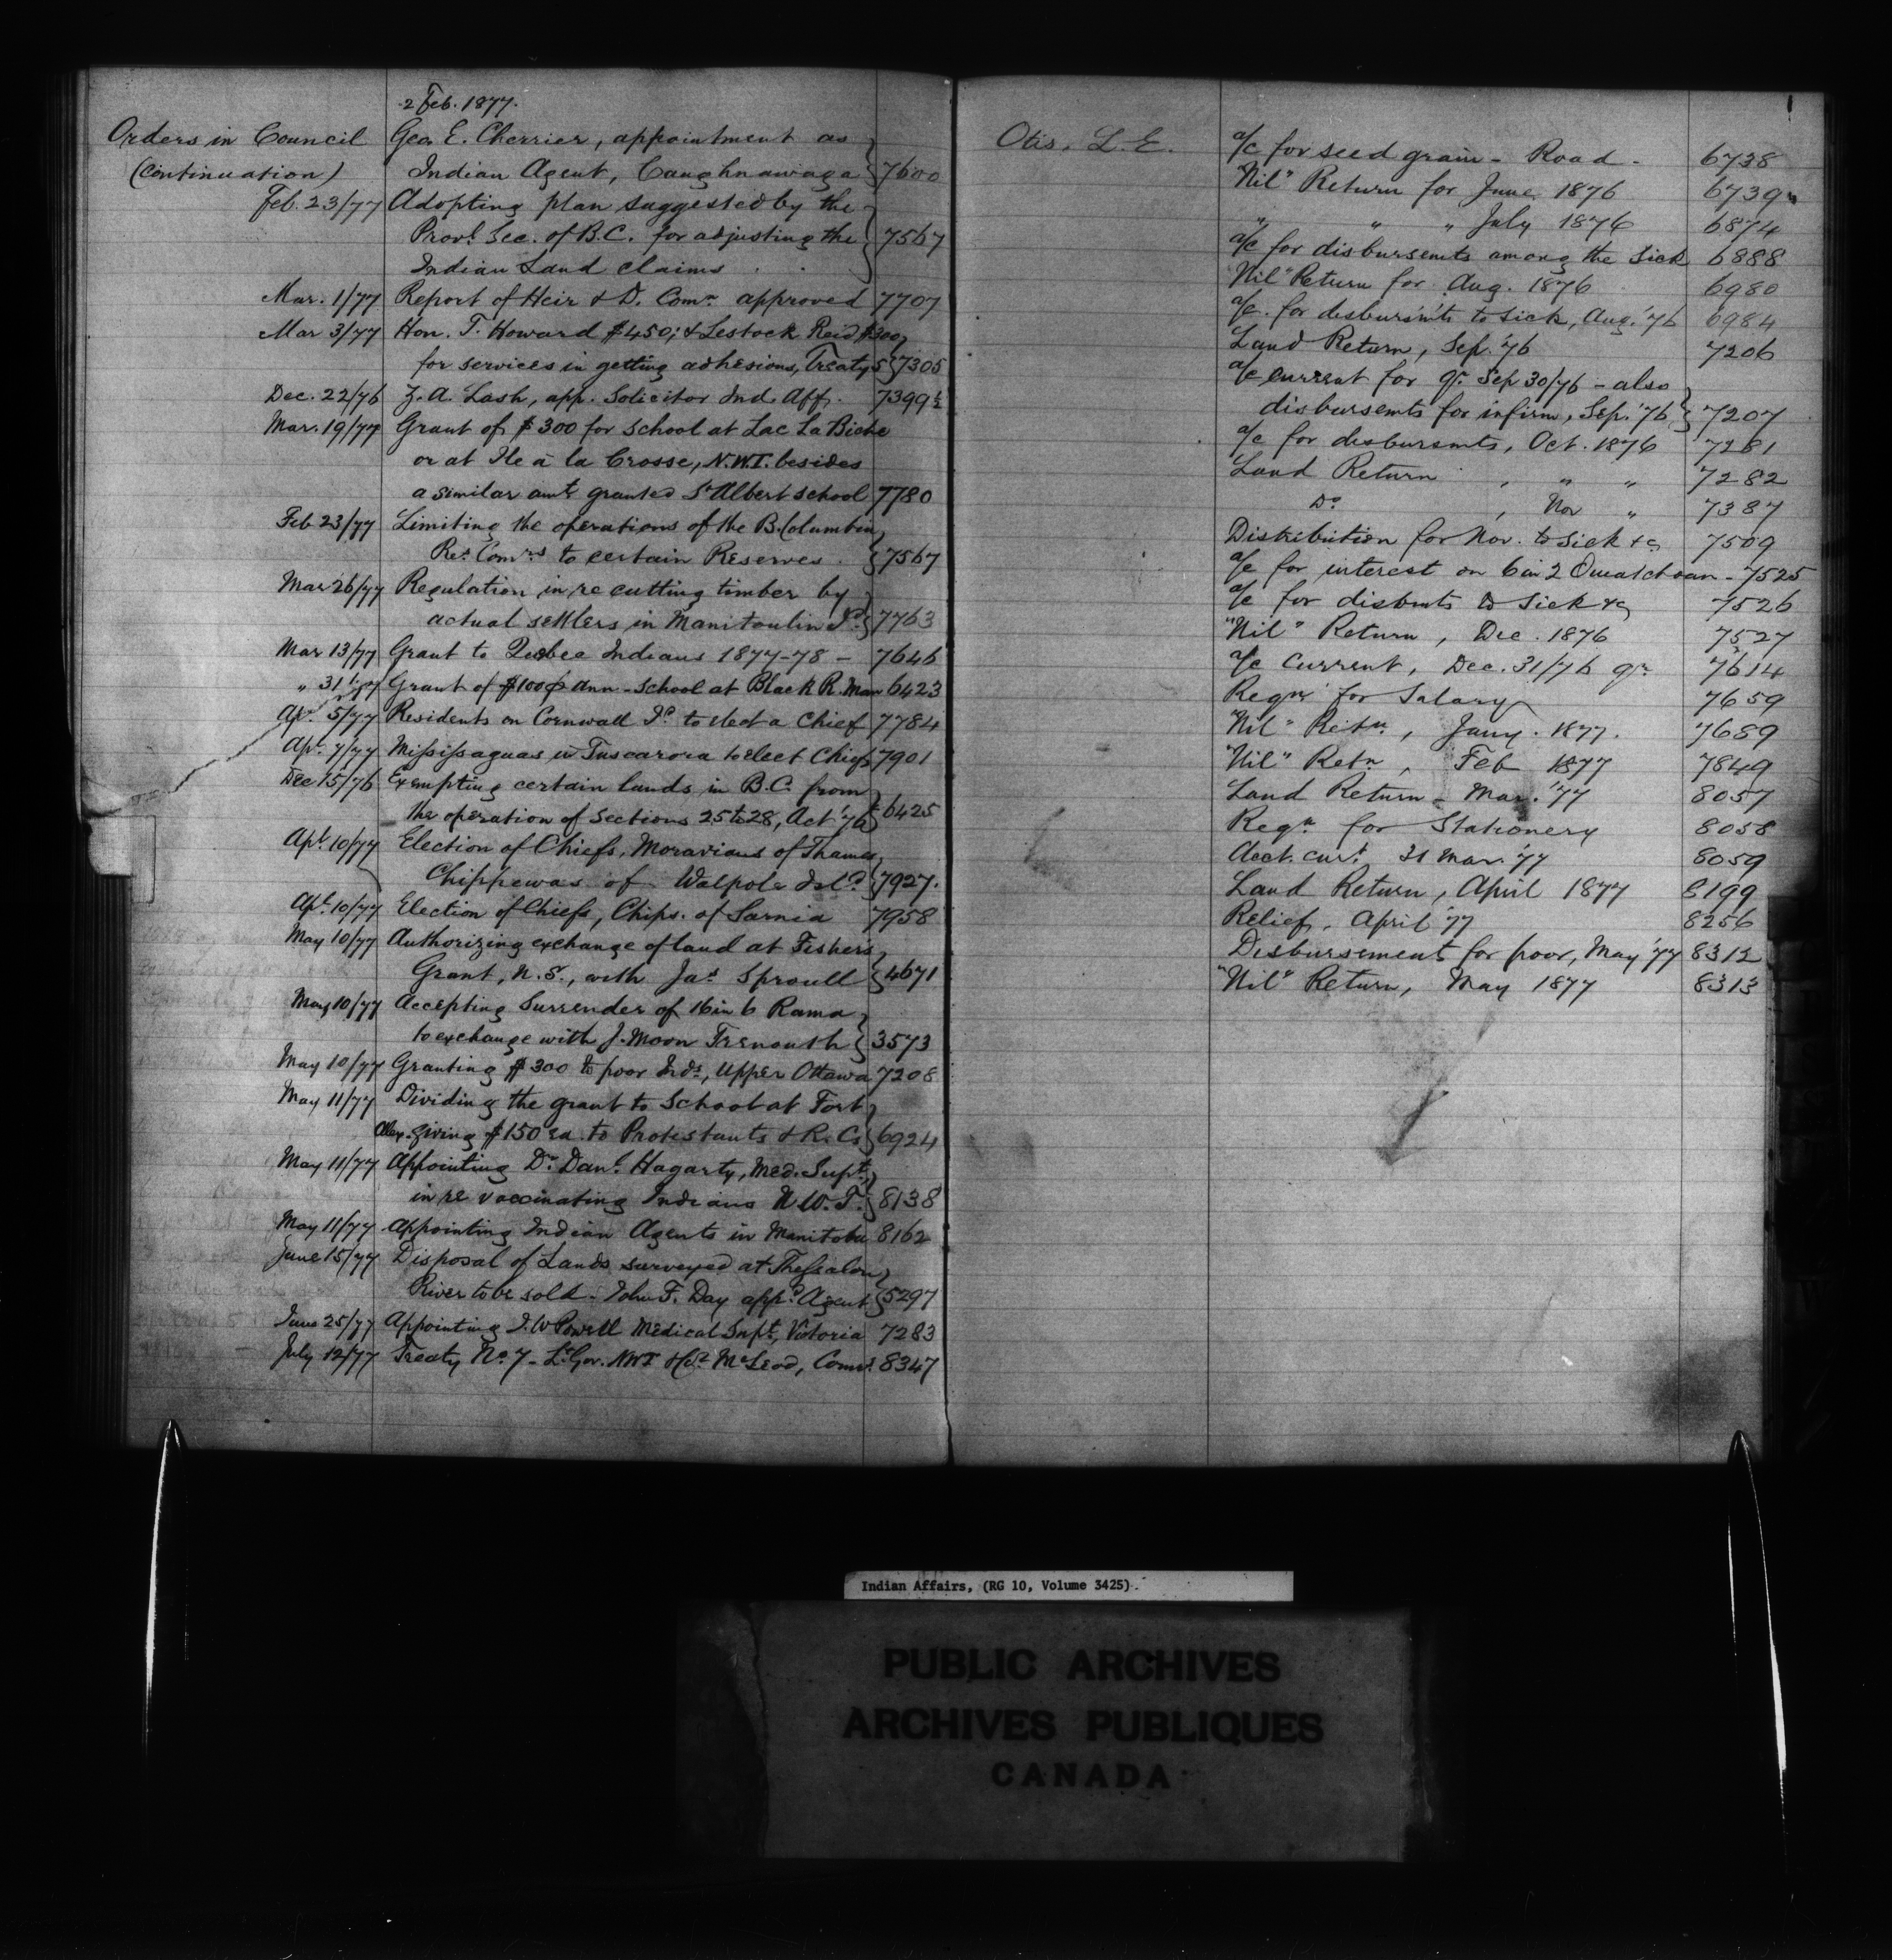 2 Feb. 1877.
Orders in Council Geo. E. Cherrier, appointment as
(continuation) Indian Agent, Caughnawaga } 7600
Feb. 23/77 Adopting plan suggested by the
Provl. Sec. of B.C. for adjusting the } 7567
Indian Land claims . .
Mar. 1/77 Report of Heir & D. Comn. approved 7707
Mar 3/77 Hon. T. Howard $450; & Lestock Reid $300
for services in getting adhesions, Treaty 5 } 7305
Dec. 22/76 Z. A. Lash, app. Solicitor Ind. Aff. 7399½
Mar. 19/77 Grant of $300 for school at Lac La Biche
or at Ile à la Crosse, N.W.T. besides
a similar amt. granted St Albert school 7780
Feb 23/77 Limiting the operations of the B. Columbia
Res. Comrs to certain Reserves . } 7567
Mar 26/77 Regulation in re cutting timber by
actual settlers in Manitoulin Id. } 7763
Mar 13/77 Grant to Quebec Indians 1877-78 - 7646
" 31/77 Grant of $100 p ann - school at Black R. Man 6423
Apr. 5/77 Residents on Cornwall Id. to elect a Chief 7784
Apl. 7/77 Mississaguas in Tuscarora to elect Chiefs 7901
Dec 15/76 Exempting certain lands in B.C. from
the operation of Sections 25 to 28, Act '76 } 6425
Apl. 10/77 Election of Chiefs, Moravians of Thames,
Chippewas of Walpole Isld. } 7927.
Apl. 10/77 Election of Chiefs, Chips. of Sarnia 7958
May 10/77 Authorizing exchange of land at Fishers
Grant, N.S., with Jas. Sproull } 4671
May 10/77 Accepting Surrender of 16 in 6 Rama
to exchange with J. Moon Trenouth } 3573
May 10/77 Granting $300 to poor Inds., Upper Ottawa 7208
May 11/77 Dividing the grant to School at Fort
Alex. giving $150 ea. to Protestants & R. Cs } 6924
May 11/77 Appointing Dr. Danl. Hagarty, Med. Supt.
in re vaccinating Indians N.W.T. } 8138
May 11/77 Appointing Indian Agents in Manitoba 8162
June 15/77 Disposal of Lands surveyed at Thessalon
River to be sold - John F. Day appd. Agent } 5297
June 25/77 Appointing I. W Powell Medical Supt, Victoria 7283
July 12/77 Treaty No. 7 - Lt. Gov. NWT & Col. McLeod, Comrs. 8347
Otis, L. E. a/c for seed grain - Road - 6738
"Nil" Return for June 1876 6739
" " " July 1876 6874
a/c for disbursemts among the Sick 6888
"Nil" Return for Aug. 1876 6980
a/c. for disbursm'ts to sick, Aug. '76 6984
Land Return, Sep. '76 7206
a/c current for qr. Sep 30/76 - also
disbursemts for infirm, Sep. '76 } 7207
a/c for disbursmts, Oct. 1876 7281
Land Return , " " 7282
Do. , Nov " 7387
Distribution for Nov. to sick &c 7509
a/c for interest on 6 in 2 Ouiatchouan - 7525
a/c for disbmts to Sick &c 7526
"Nil" Return, Dec. 1876 7527
a/c Current, Dec. 31/76 qr. 7614
Reqn for Salary 7659
"Nil" Retn., Jany. 1877. 7689
"Nil" Retn, Feb 1877 7849
Land Return - Mar. '77 8057
Reqn for Stationery 8058
Acct. curt. 31 Mar. '77 8059
Land Return, April 1877 8199
Relief, April '77 8256
Disbursement for poor, May '77 8312
"Nil" Return, May 1877 8313
Indian Affairs, (RG 10, Volume 3425).
PUBLIC ARCHIVES
ARCHIVES PUBLIQUES
CANADA